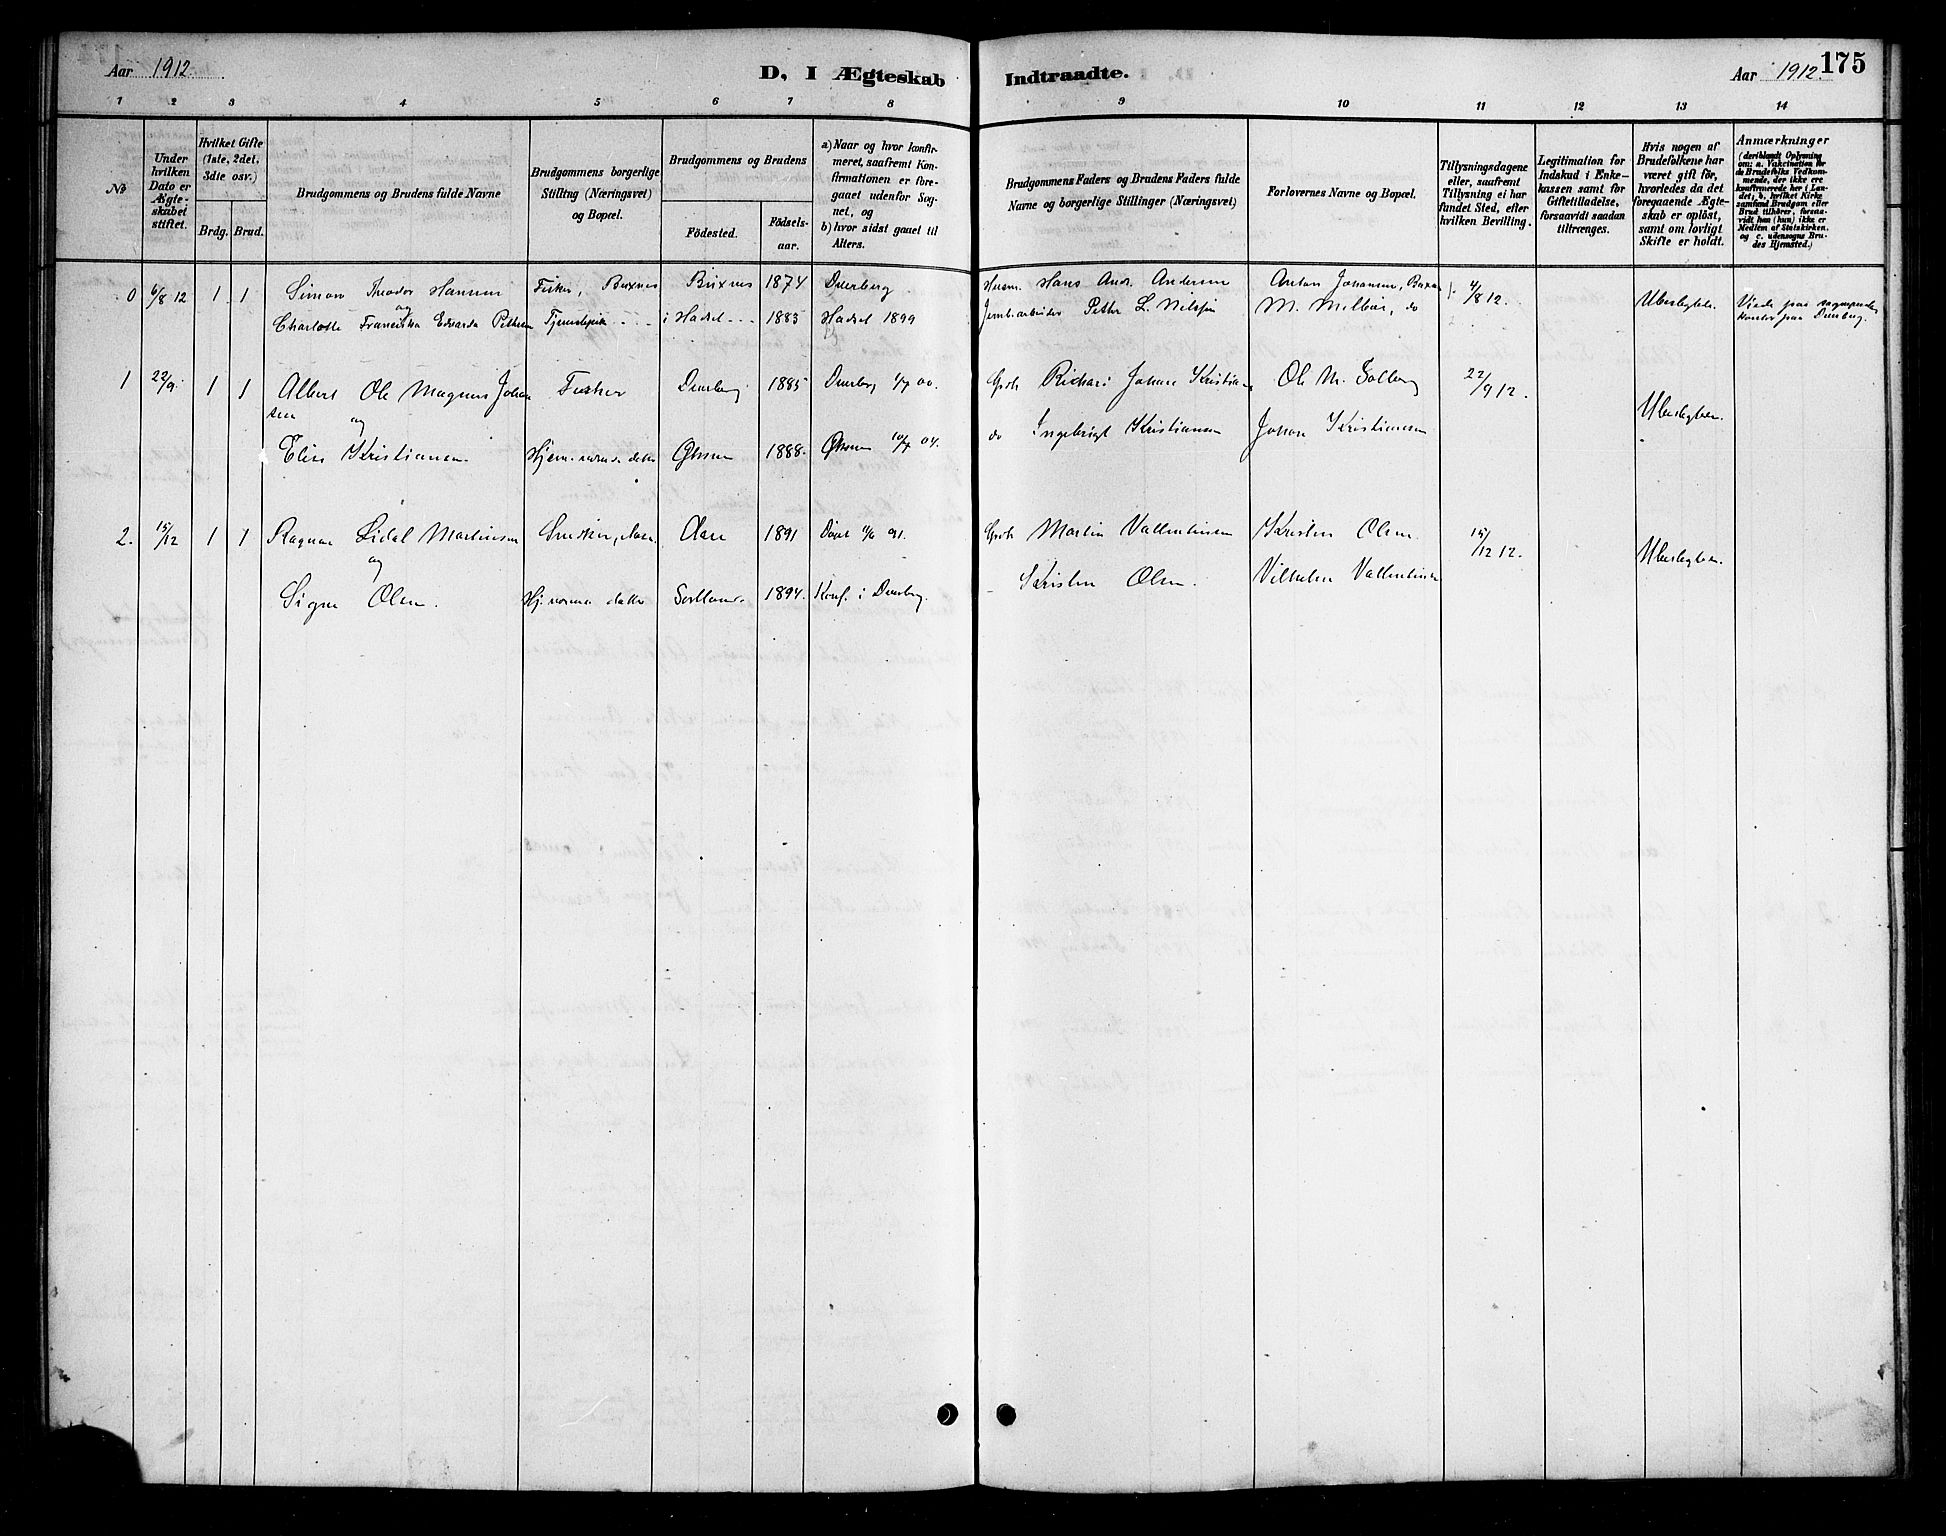 Aar 1912.
D, I Ægteskab
Indtraadte.
Aar 1912.
175
1 2 3 4 5 6 7 8 9 10 11 12 13 14
No
Under hvilken Dato er Ægteskabet stiftet.
Hvilket Gifte (1ste, 2det, 3die osv.)
Brdg. Brud.
Brudgommens og Brudens fulde Navne
Brudgommens borgerlige Stilling (Næringsvei) og Bopæl.
Brudgommens og Brudens
Födested. Födselsaar.
a) Naar og hvor konfirmeret, saafremt Konfirmationen er foregaaet udenfor Sognet, og
b) hvor sidst gaaet til Alters.
Brudgommens Faders og Brudens Faders fulde Navne og borgerlige Stillinger (Næringsvei)
Forlovernes Navne og Bopæl.
Tillysningsdagene eller, saafremt Tillysning ei har fundet Sted, efter hvilken Bevilling.
Legitimation for Indskud i Enkekassen samt for Giftetilladelse, forsaavidt saadan tiltrænges.
Hvis nogen af Brudefolkene har været gift før, hvorledes da det foregaaende Ægteskab er opløst, samt om lovligt Skifte er holdt.
Anmærkninger
(deriblandt Oplysning om: a. Vakcination for de Brudefolks Vedkommende, der ikke ere konfirmerede her i Landet; b. hvilket Kirkesamfund Brudgom eller Brud tilhører, forsaavidt han (hun) ikke er Medlem af Statskirken, og c. udensogns Brudes Hjemsted.)
0 6/8 12 1 1 Simon Theodor Hansen Fisker, Buxnes Buxnes 1874 Dverberg Husm. Hans Andr. Andersen Anton Johansen, 4/8 12. Ubeslegtede.
og
Charlotte Franciska Edvarda Pettersen i Hadsel 1883 Hadsel 1899 Petter L. Nilssen do
1 22/9 1 1 Albert Ole Magnus Johansen Fisker Dverberg 1885 Dverberg 00. Richard Johan Kristian Ole M. Solberg 22/9 12. Ubeslegtede.
og
Elise Kristiansen Øksnes 1888. Øksnes 04. do Ingebrigt Kristiansen Johan Kristiansen
2. 15/12 1 1 Ragnar Sidal Martinsen 1891 Martin Vallentinsen Kristen Olsen 15/12 12. Ubeslegtede.
og
Signe Olsen. Sortland. 1894. Konf. i Dverberg. Kristen Olsen. Vilhelm Vallentinsen